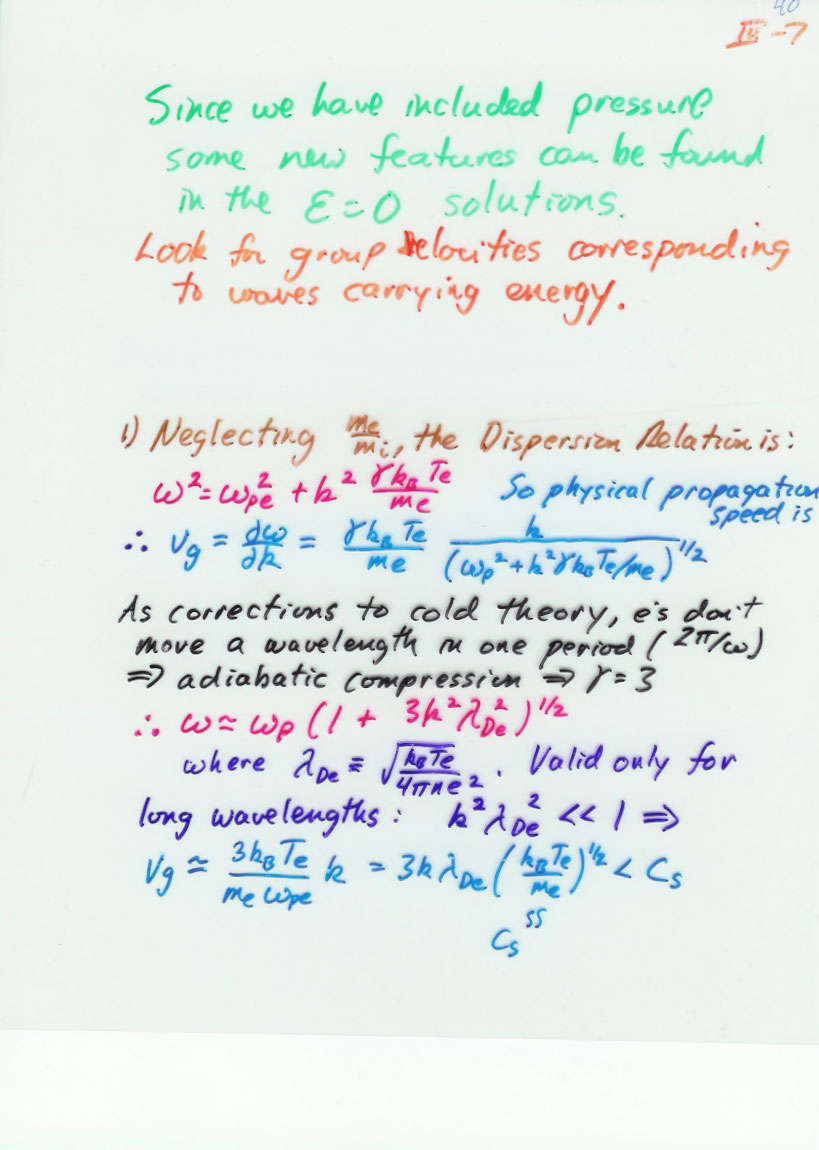 40
III-7
Since we have included pressure
some new features can be found
in the ε=0 solutions.
Look for group velocities corresponding
to waves carrying energy.
1) Neglecting me/mi, the Dispersion Relation is:
ω² = ωpe² + k² γkBTe/me So physical propagation
speed is
∴ Vg = ∂ω/∂k = γkBTe/me k/(ωp² + k²γkBTe/me)^1/2
As corrections to cold theory, e's don't
move a wavelength in one period (2π/ω)
⇒ adiabatic compression ⇒ γ = 3
∴ ω ≃ ωp (1 + 3k²λDe²)^1/2
where λDe ≡ √(kBTe/4πne²). Valid only for
long wavelengths: k²λDe² << 1 ⇒
Vg ≃ 3kBTe/meωpe k = 3kλDe(kBTe/me)^1/2 < Cs
ss
Cs